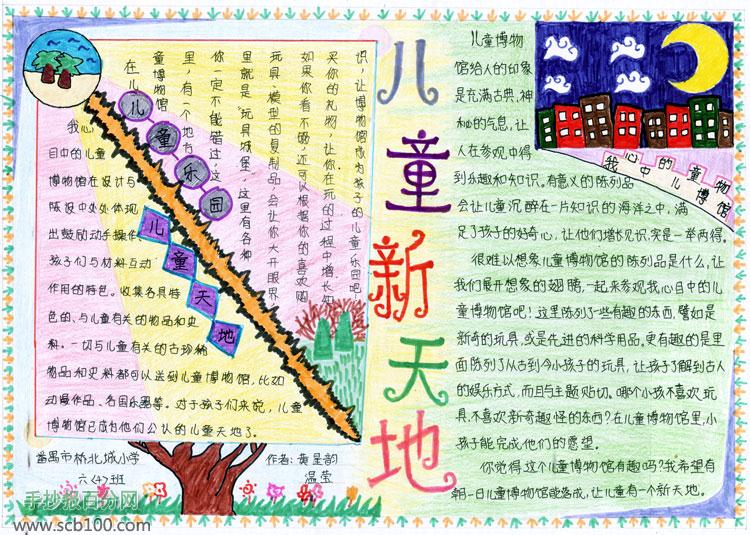 儿童新天地
在儿
童博物馆
里,有一个地方
你一定不能错过,这
里就是“玩具城堡”,这里有各种
玩具模型的复制品,会让你大开眼界
如果你看不够,还可以根据你的喜欢购
买你的礼物,让你在玩的过程中增长知
识,让博物馆成为孩子的儿童乐园吧!
儿童乐园
儿童天地
我心
目中的儿童
博物馆在设计与
陈设中处处体现
出鼓励动手操作,
孩子们与材料互动
作用的特色。收集各具特
色的、与儿童有关的物品和史
料。一切与儿童有关的古珍稀
物品和史料都可以送到儿童博物馆,比如
动漫作品、各国乐器等。对于孩子们来说,儿童
博物馆已成为他们公认的儿童天地了。
番禺市桥北城小学
六(4)班
作者:黄星韵
温莹
儿童博物
馆给人的印象
是充满古典,神
秘的气息,让
人在参观中得
到乐趣和知识。有意义的陈列品
会让儿童沉醉在一片知识的海洋之中,满
足了孩子的好奇心,让他们增长见识,实是一举两得。
很难以想象儿童博物馆的陈列品是什么,让
我们展开想象的翅膀,一起来参观我心目中的儿
童博物馆吧!这里陈列了一些有趣的东西,譬如是
新奇的玩具,或是先进的科学用品。更有趣的是里
面陈列了从古到今小孩子的玩具,让孩子了解到古人
的娱乐方式,而且与主题贴切。哪个小孩不喜欢玩
具,不喜欢新奇趣怪的东西?在儿童博物馆里,小
孩子能完成他们的愿望。
你觉得这个儿童博物馆有趣吗?我希望有
朝一日儿童博物馆能落成,让儿童有一个新天地。
我心中的儿童博物馆
手抄报百分网
www.scb100.com